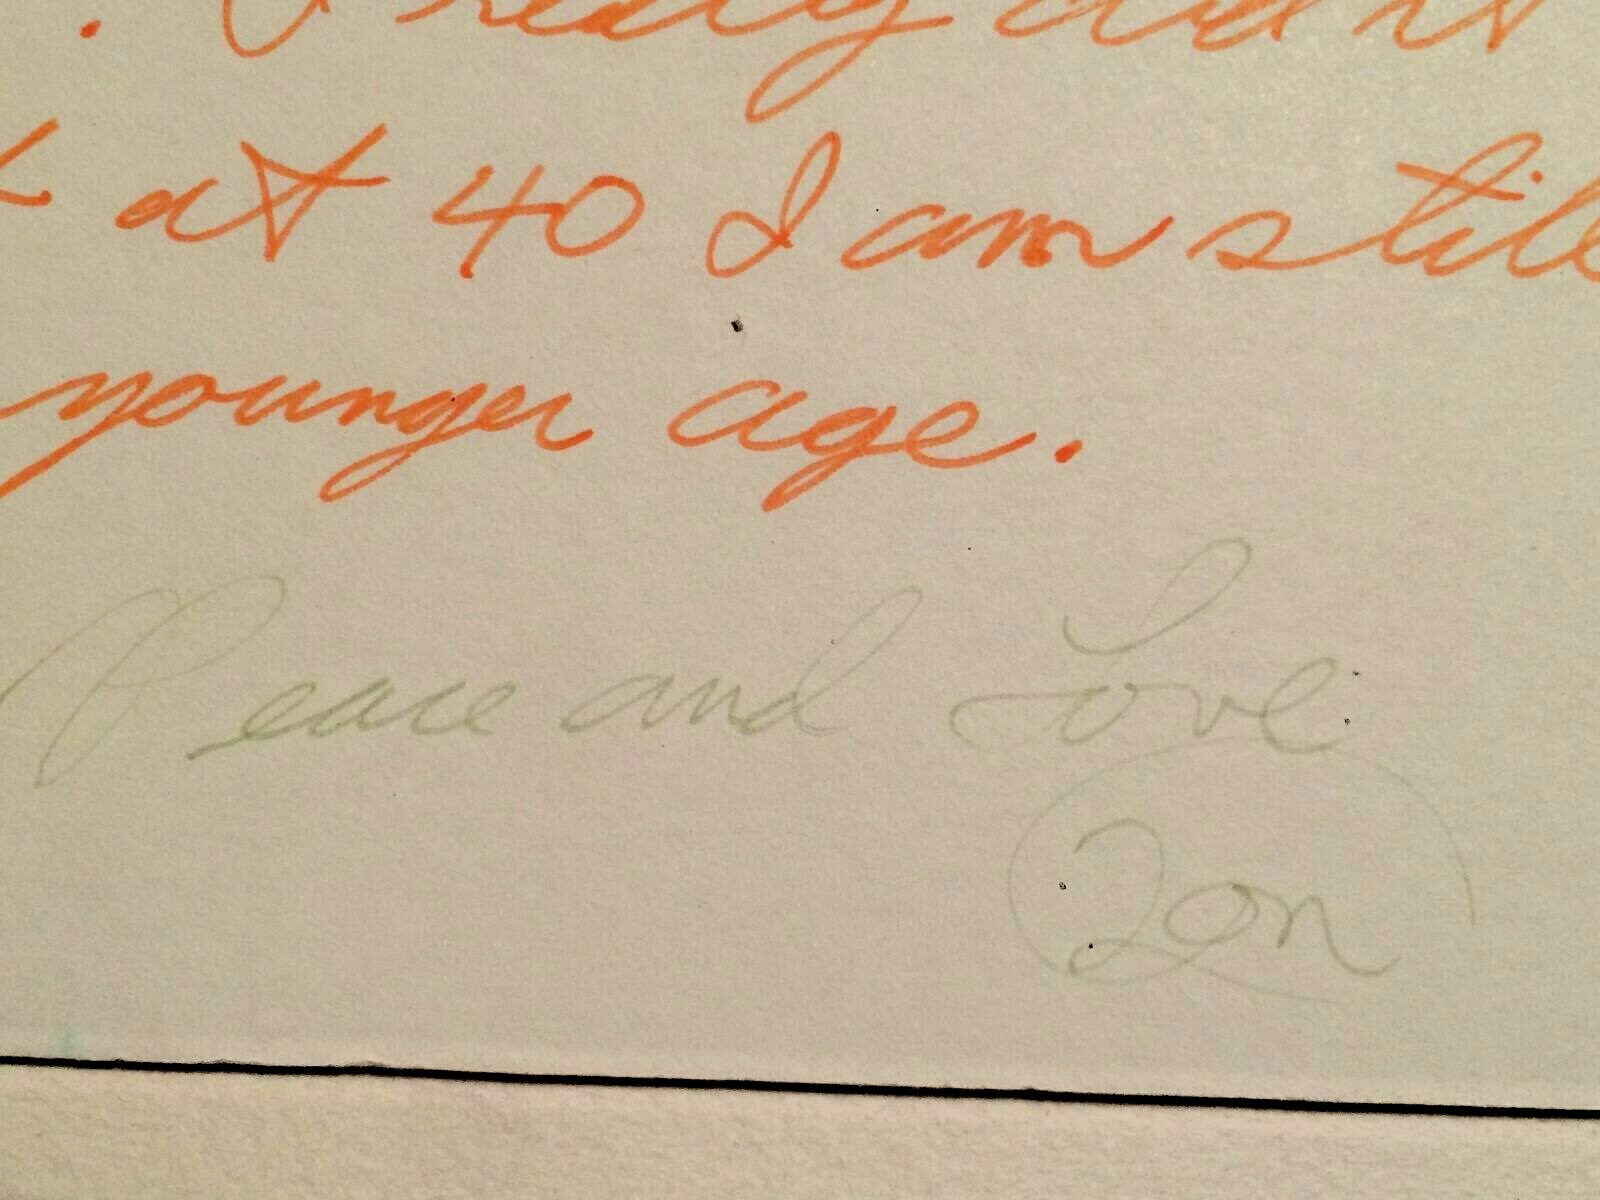 . I really did it
at 40 I am still
younger age.
Peace and Love